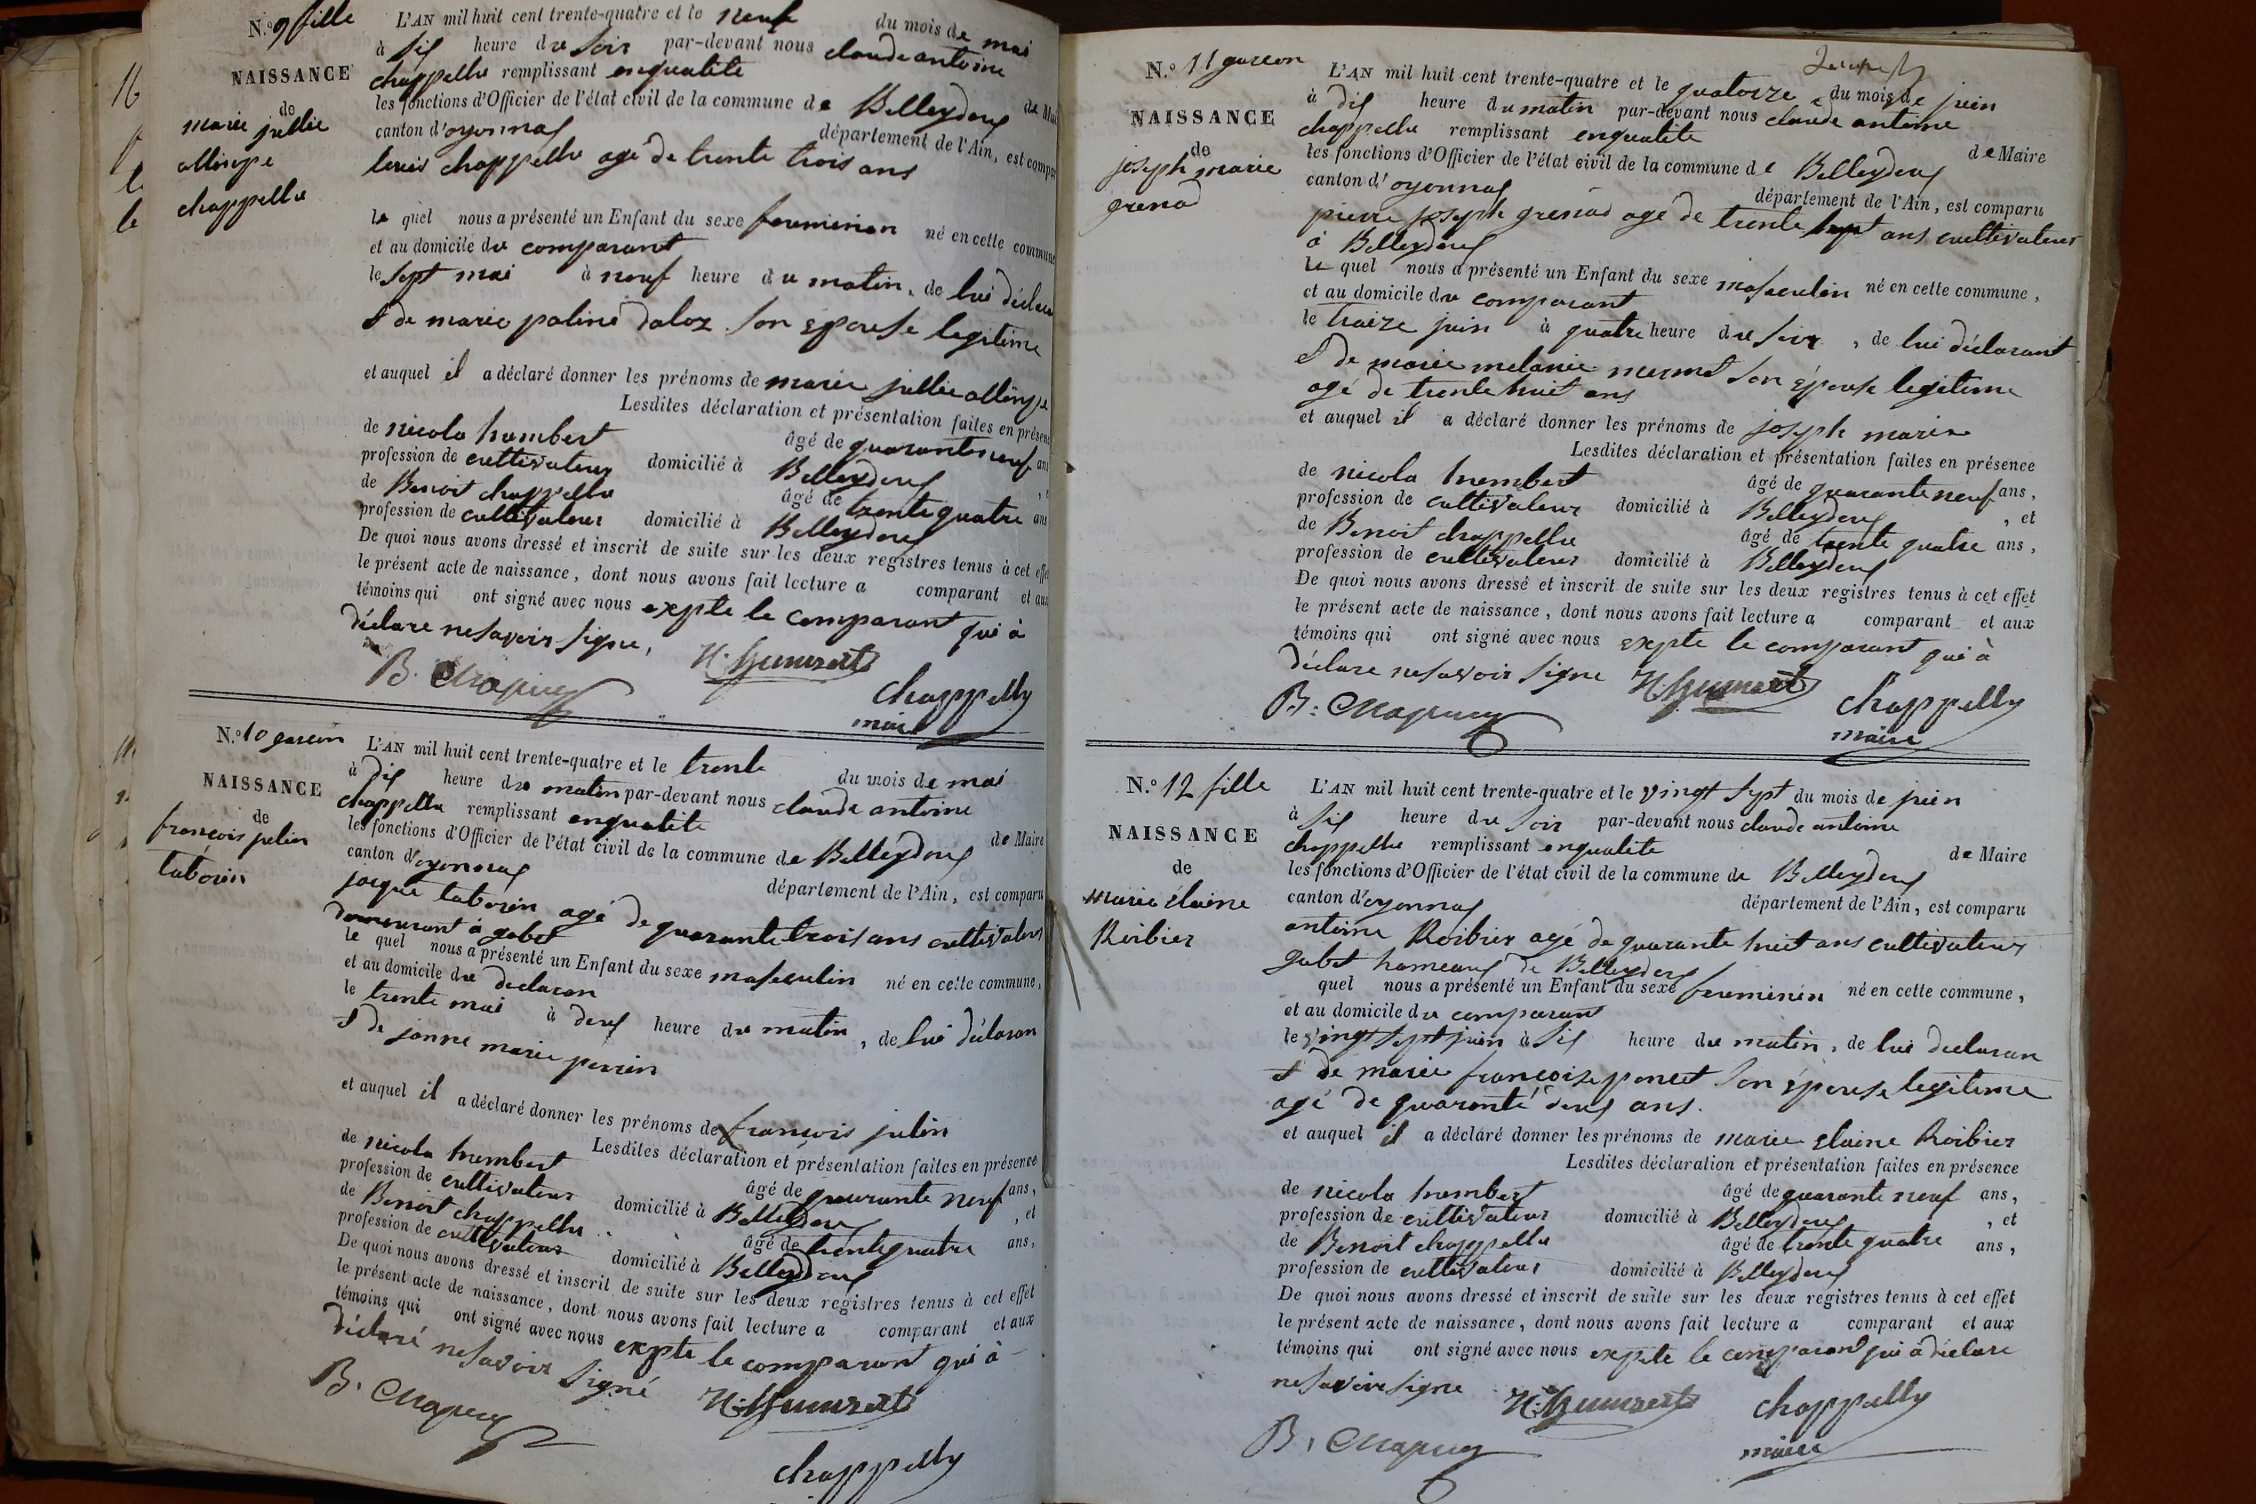 N.º 9 fille
NAISSANCE
de
marie jullie
allinpe
chappellu
L'AN mil huit cent trente-quatre et le neuf du mois de mai
à six heure du soir par-devant nous claude antoine
chappellu remplissant enqualité de Mai
les fonctions d'Officier de l'état civil de la commune de Belleydoux
canton d'oyonnax département de l'Ain, est compa
louis chappellu agé de trente trois ans
le quel nous a présenté un Enfant du sexe feuminien né en cette commune
et au domicile du comparant
le sept mai à neuf heure du matin, de lui déclara
et de marie paline daloz son épouse legitime
et auquel il a déclaré donner les prénoms de marie jullie allinpe
Lesdites déclaration et présentation faites en présen
de nicola humbert âgé de quarante neuf ans
profession de cultivateur domicilié à Belleydoux
de Benoit chappellu âgé de trente quatre ans
profession de cultivateur domicilié à Belleydoux
De quoi nous avons dressé et inscrit de suite sur les deux registres tenus à cet effe
le présent acte de naissance, dont nous avons fait lecture a comparant et aux
témoins qui ont signé avec nous expte le comparant qui à
déclare nesavoir signe,
B. Chapuy N. Humbert
chappelly
maire
N.º 10 garcon
NAISSANCE
de
françois julin
taborin
L'AN mil huit cent trente-quatre et le trente du mois de mai
à dix heure du matin par-devant nous claude antoine
chappellu remplissant enqualité de Maire
les fonctions d'Officier de l'état civil de la commune de Belleydoux
canton d'oyonnax département de l'Ain, est comparu
jacque taborin agé de quarante trois ans cultivateur
demeurant à gobet
le quel nous a présenté un Enfant du sexe masculin né en cette commune,
et au domicile du declaran
le trente mai à deux heure du matin, de lui déclaran
et de janne marie perrin
et auquel il a déclaré donner les prénoms de françois julin
Lesdites déclaration et présentation faites en présence
de nicola humbert âgé de quarante neuf ans,
profession de cultivateur domicilié à Belleydoux, et
de Benoit chappellu âgé de trente quatre ans,
profession de cultivateur domicilié à Belleydoux
De quoi nous avons dressé et inscrit de suite sur les deux registres tenus à cet effet
le présent acte de naissance, dont nous avons fait lecture a comparant et aux
témoins qui ont signé avec nous expte le comparant qui à
déclaré nesavoir signé
B. Chapuy N. Humbert
chappelly
N.º 11 garcon
NAISSANCE
de
joseph marie
grenad
L'AN mil huit cent trente-quatre et le quatorze du mois de juin
à dix heure du matin par-devant nous claude antoine
chappellu remplissant enqualité de Maire
les fonctions d'Officier de l'état civil de la commune de Belleydoux
canton d'oyonnax département de l'Ain, est comparu
pierre joseph grenad agé de trente sept ans cultivateur
à Belleydoux
le quel nous a présenté un Enfant du sexe masculin né en cette commune,
et au domicile du comparant
le traize juin à quatre heure du soir, de lui déclarant
et de marie melanie mermet son épouse legitime
agé de trente huit ans
et auquel il a déclaré donner les prénoms de joseph marie
Lesdites déclaration et présentation faites en présence
de nicola humbert âgé de quarante neuf ans,
profession de cultivateur domicilié à Belleydoux, et
de Benoit chappellu âgé de trente quatre ans,
profession de cultivateur domicilié à Belleydoux
De quoi nous avons dressé et inscrit de suite sur les deux registres tenus à cet effet
le présent acte de naissance, dont nous avons fait lecture a comparant et aux
témoins qui ont signé avec nous expte le comparant qui à
déclare nesavoir signe N. Humbert
B. Chapuy chappelly
maire
N.º 12 fille
NAISSANCE
de
marie élaine
Roibier
L'AN mil huit cent trente-quatre et le vingt sept du mois de juin
à six heure du soir par-devant nous claude antoine
chappellu remplissant enqualité de Maire
les fonctions d'Officier de l'état civil de la commune de Belleydoux
canton d'oyonnax département de l'Ain, est comparu
antoine Roibier agé de quarante huit ans cultivateur
gobet hameaux de Belleydoux
quel nous a présenté un Enfant du sexe feuminin né en cette commune,
et au domicile du comparant
le vingt sept juin à six heure du matin, de lui declaran
et de marie françoise poncet son épouse legitime
agé de quarante deux ans.
et auquel il a déclaré donner les prénoms de marie elaine Roibier
Lesdites déclaration et présentation faites en présence
de nicola humbert âgé de quarante neuf ans,
profession de cultivateur domicilié à Belleydoux, et
de Benoit chappellu âgé de trente quatre ans,
profession de cultivateur domicilié à Belleydoux
De quoi nous avons dressé et inscrit de suite sur les deux registres tenus à cet effet
le présent acte de naissance, dont nous avons fait lecture a comparant et aux
témoins qui ont signé avec nous expte le comparant qui à déclare
nesavoir signe N. Humbert chappelly
B. Chapuy maire